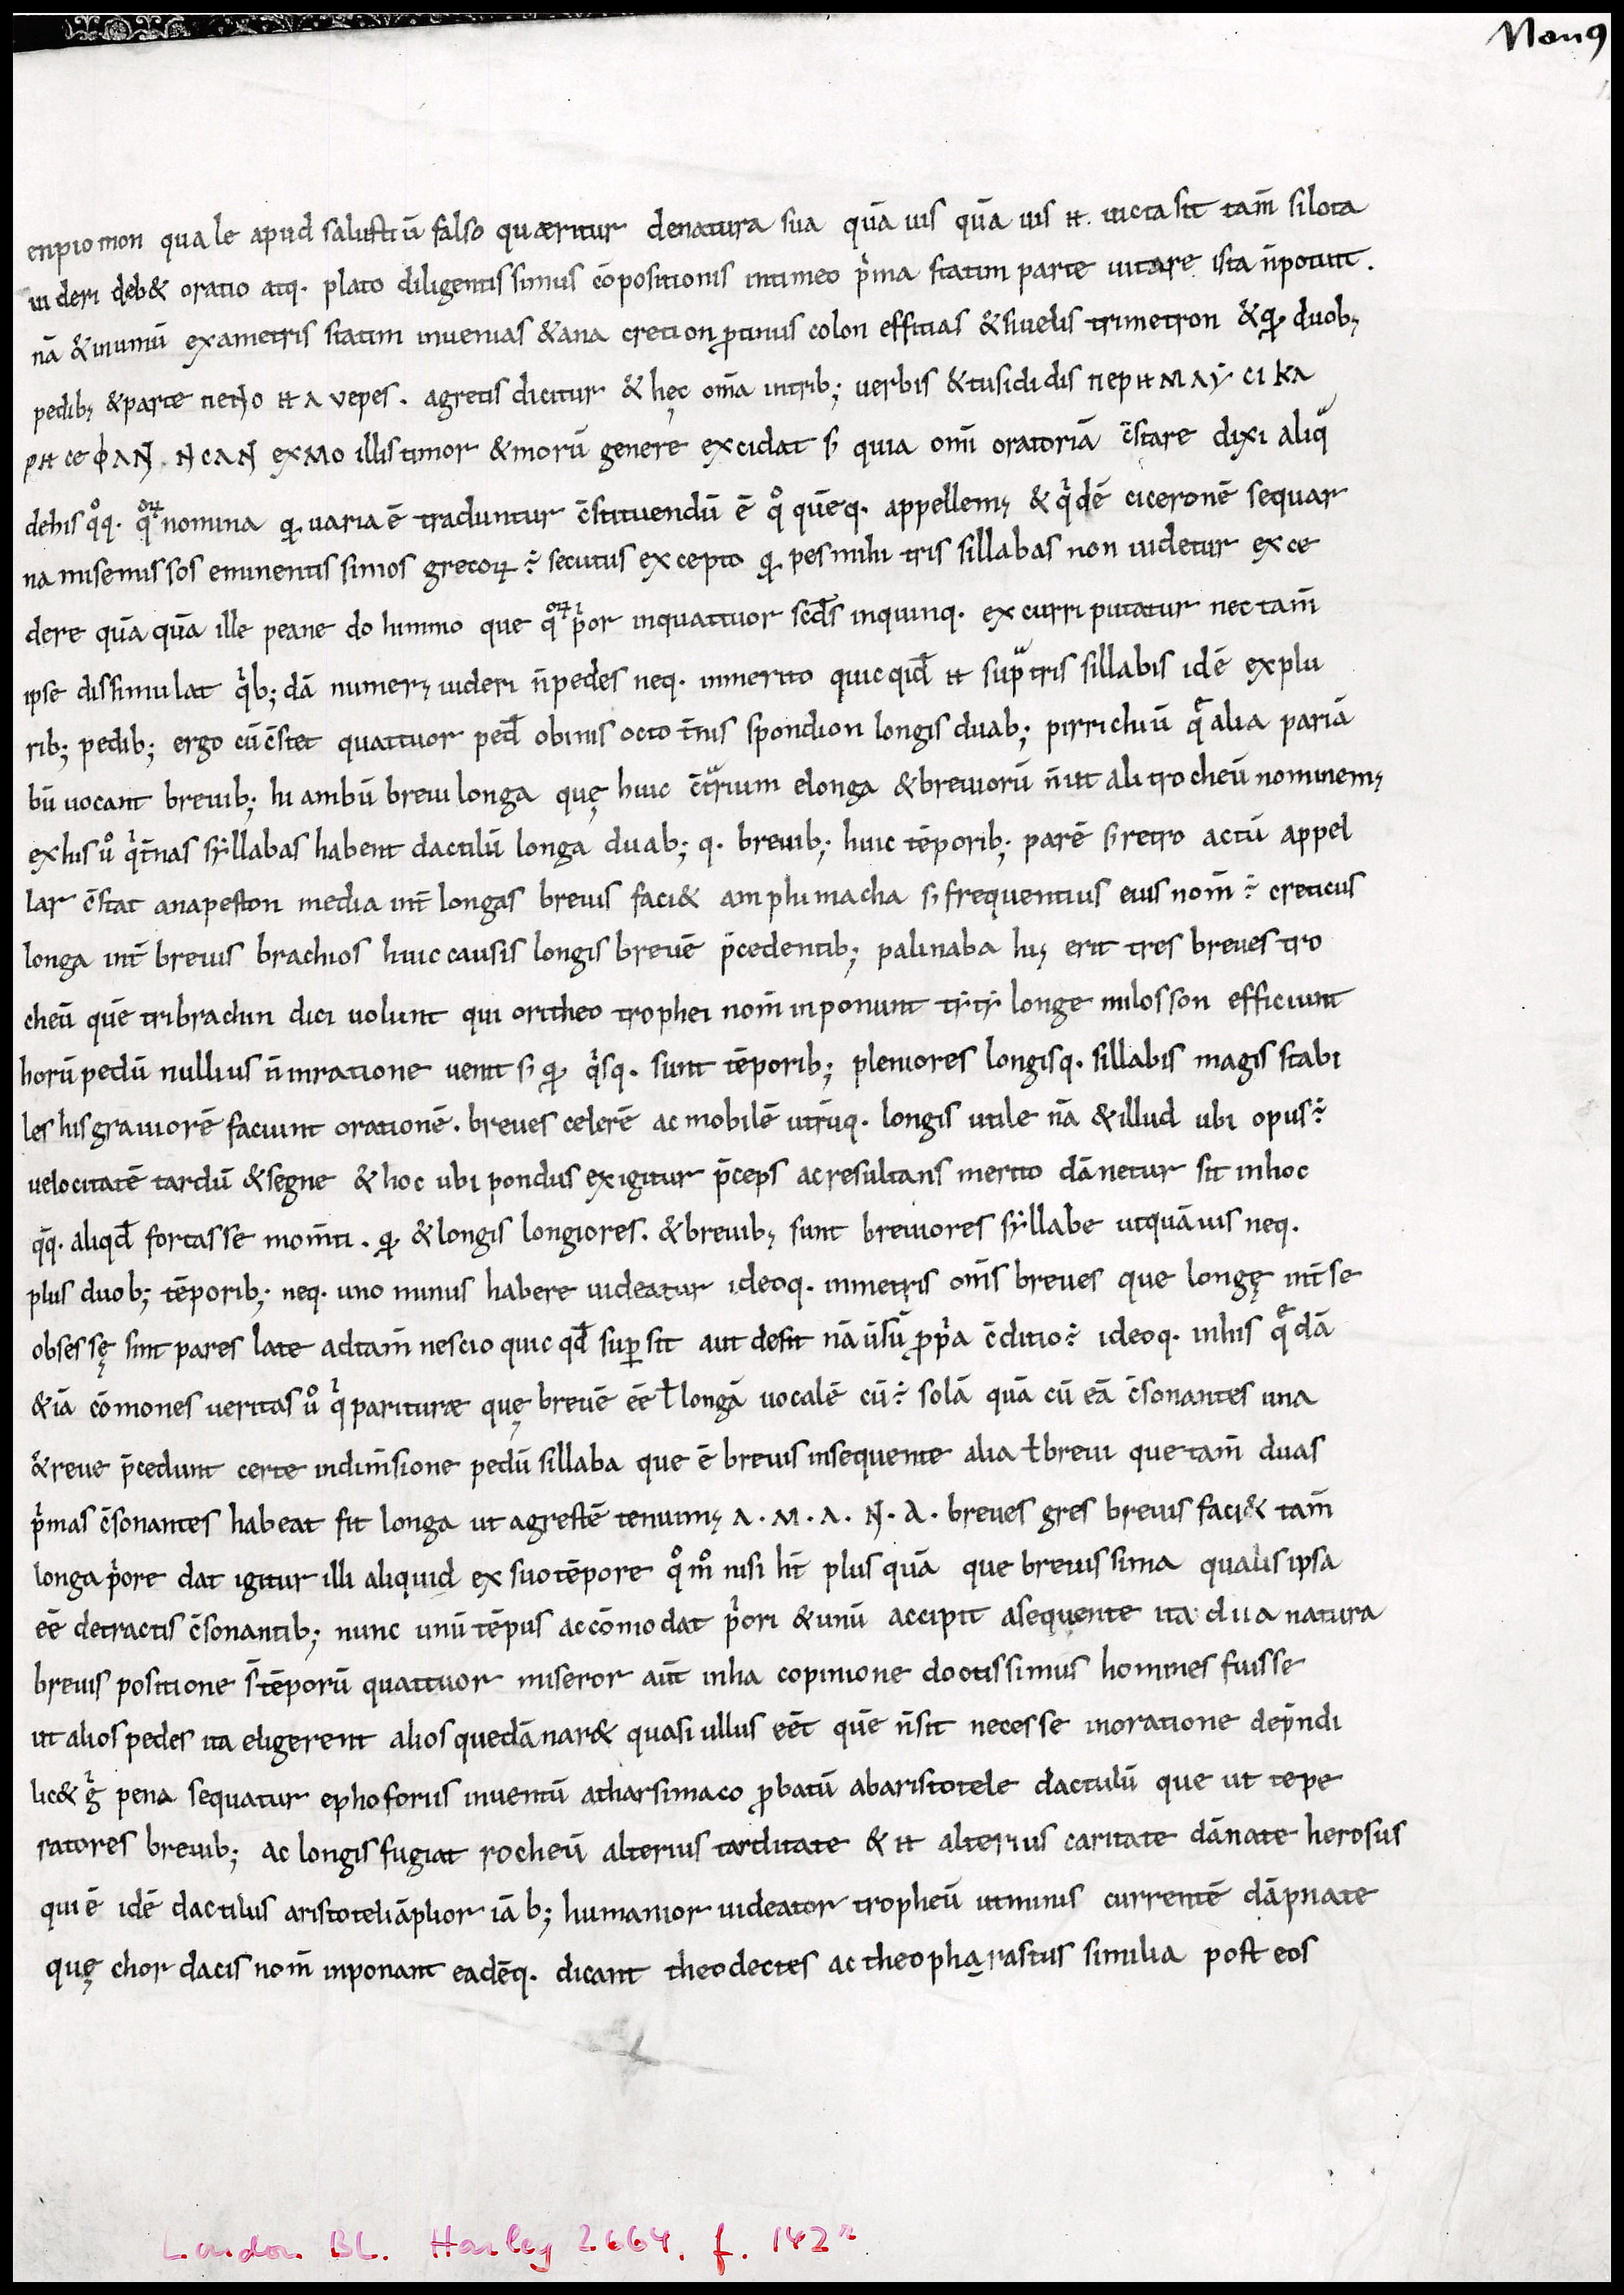 Non 9
enpiomon quale apud salusti ū falso quæritur denatura sua quā uis quā uis H. uicta sit tam̄ silota
uideri deb& oratio atq. plato diligentissimus cōpositionis intimeo p̓ma statim parte uitare ista n̄potuit.
nā &inumū exametris statim inuenias &ana creti on ꝓtinus colon effitias &siuelis trimetron &ꝙ duob;
pedib; &parte neɳo H A vepes. agretis dicitur & hęc om̄a intrib; uerbis &tusididis nepHMAÿ CI KA
PH ceΦAN. NCAN exMo illis timor &morū genere excidat s; quia omī oratoriā c̄stare dixi aliq
dehis q°q. qoꝝ nomina ꝙ uaria ē traduntur c̄stituendū ē q° quēq. appellem; & q̓dē ciceronē sequar
na misemissos eminentissimos grecoꝝ ÷ secutus excepto ꝙ pes mihi tris sillabas non uidetur exce
dere quā quā ille peane do himmo que qoꝝ p̓or inquattuor scd̄s inquinq. excurri putatur nec tam̄
ipse dissimulat q̓b; dā numer; uideri n̄pedes neq. inmerito quicqid̄ H sup tris sillabis idē explu
rib; pedib; ergo cū c̄stet quattuor ped̄ obinis octo t̄nis spondion longis duab; pirrichiū q̄ alia pariā
bū uocant breuib; hi ambū breui longa quę huic c̄trium elonga &breuiorū n̄ut ali trocheū nominem;
exhis u° q̓t̄nas sÿllabas habent dactilū longa duab; q. breuib; huic tēporib; parē s;retro actū appel
lar c̄stat anapeston media int̄ longas breuis faci& amphimacha s; frequentius eius nom̄ ÷ creticus
longa int̄ breuis brachios huic causis longis breuē p̄cedentib; palinaba hi; erit tres breues tro
cheū quē tribrachin dici uolunt qui oritheo trophei nom̄ inponunt tÿtÿ longe milosson efficiunt
horū pedū nullius n̄inratione uenit s; ꝙ q̓sq. sunt tēporib; pleniores longisq. sillabis magis stabi
les his grauiorē faciunt orationē. breues celerē ac mobilē utrūq. longis utile nā &illud ubi opus÷
uelocitatē tardū &segne & hoc ubi pondus exigitur p̄ceps acresultans merito dānetur sit inhoc
q̄q. aliqd̄ fortasse mom̄ti. ꝙ &longis longiores. &breuib; sunt breuiores sÿllabe utquāuis neq.
plus duob; tēporib; neq. uno minus habere uideatur ideoq. inmetris om̄s breues que longę int̄ se
obsessę sint pares late adtam̄ nescio quic qd̄ suꝑ sit aut desit nā ūsū ꝓp̓a c̄ditio÷ ideoq. inhis q̄dā
&iā cōmones ueritas u° q̓ parituræ quę breuē eē ł longā uocalē cū÷ solā quā cū eā c̄sonantes una
&reue p̄cedunt certe indim̄sione pedū sillaba que ē breuis insequente alia ł breui que tam̄ duas
p̓mas c̄sonantes habeat fit longa ut agrestē tenuim; A. M. A. N. A. breues gres breuis faci& tam̄
longa p̓ore dat igitur illi aliquid ex suo tēpore q°m° nisi ht̄ plus quā que breuissima qualis ipsa
eē detractis c̄sonantib; nunc unū tēpus accōmodat p̓ori &unū accipit asequente ita dua natura
breuis positione s̄ tēporū quattuor miseror aūt inha copinione doctissimus homines fuisse
ut alios pedes ita eligerent alios quedā nar& quasi ullus eēt quē n̄sit necesse inoratione dep̄ndi
lic& g̓ pena sequatur ephoforus inuentū atharsimaco ꝓbatū abaristotele dactulū que ut tepe
ratores breuib; ac longis fugiat rocheū alterius tarditate & H alterius caritate dānate herosus
qui ē idē dactilus aristoteliāplior iā b; humanior uideator tropheū utminus currentē dāpnate
quę chor dacis nom̄ inponant eadēq. dicant theodectes ac theopharastus similia post eos
London BL. Harley 2664. f. 142ʳ